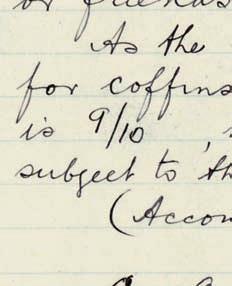 or friends
As the
for coffins
is 9/10 ,
subject to th
(Accom